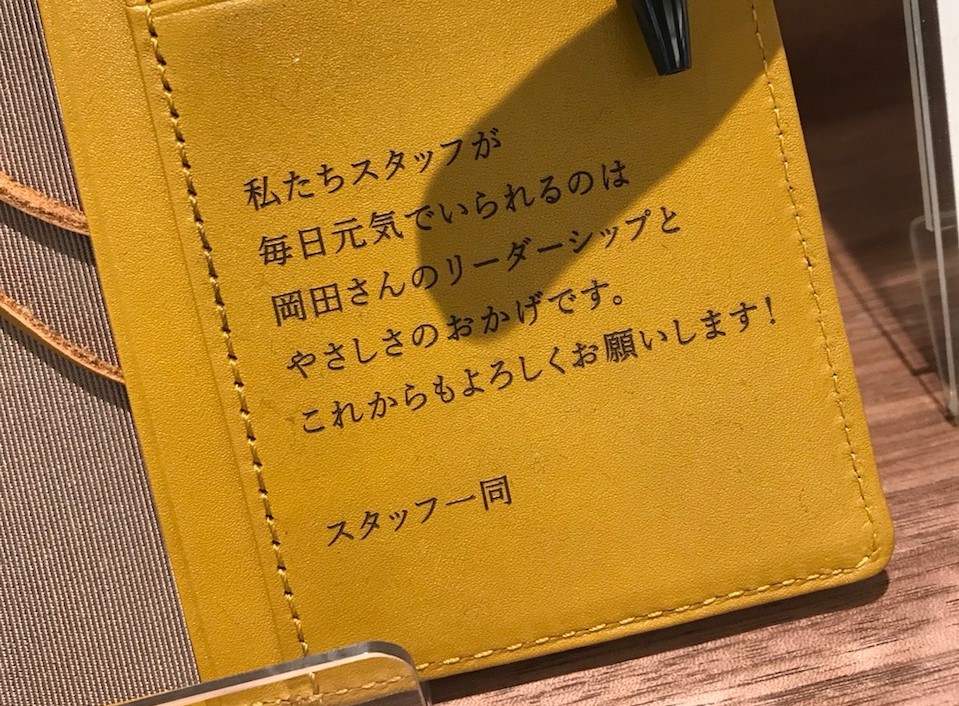 私たちスタッフが
毎日元気でいられるのは
岡田さんのリーダーシップと
やさしさのおかげです。
これからもよろしくお願いします!
スタッフ一同